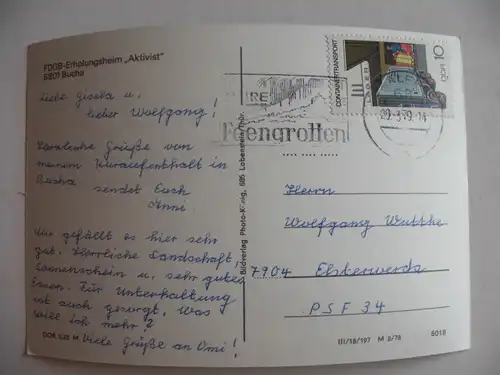 FDGB-Erholungsheim „Aktivist"
6801 Bucha
Liebe Gisela u.
lieber Wolfgang!
Herzliche Grüße von
meinem Kuraufenthalt in
Bucha sendet Euch
Anni.
Mir gefällt es hier sehr
gut. Herrliche Landschaft,
Sonnenschein u. sehr gutes
Essen. Für Unterhaltung
ist auch gesorgt, was
will ich mehr?
Viele Grüße an Omi!
Bildverlag Photo-König, 685 Lobenstein/Thür.
Feengrotten
CONTAINERTRANSPORT
10
DDR
Herrn
Wolfgang Wuttke
7904 Elsterwerda
PSF 34
III/18/197 M 8/78 6018